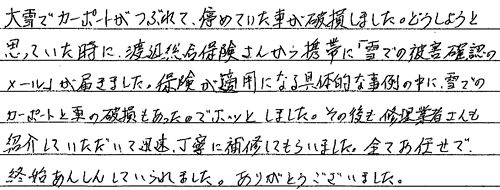 大雪でカーポートがつぶれて、停めていた車が破損しました。どうしようと
思っていた時に、渡辺総合保険さんから携帯に「雪での被害確認の
メール」が届きました。保険が適用になる具体的な事例の中に、雪での
カーポートと車の破損もあったのでホッとしました。その後も修理業者さんも
紹介していただいて迅速、丁寧に補修してもらいました。全てお任せで、
終始あんしんしていられました。ありがとうございました。